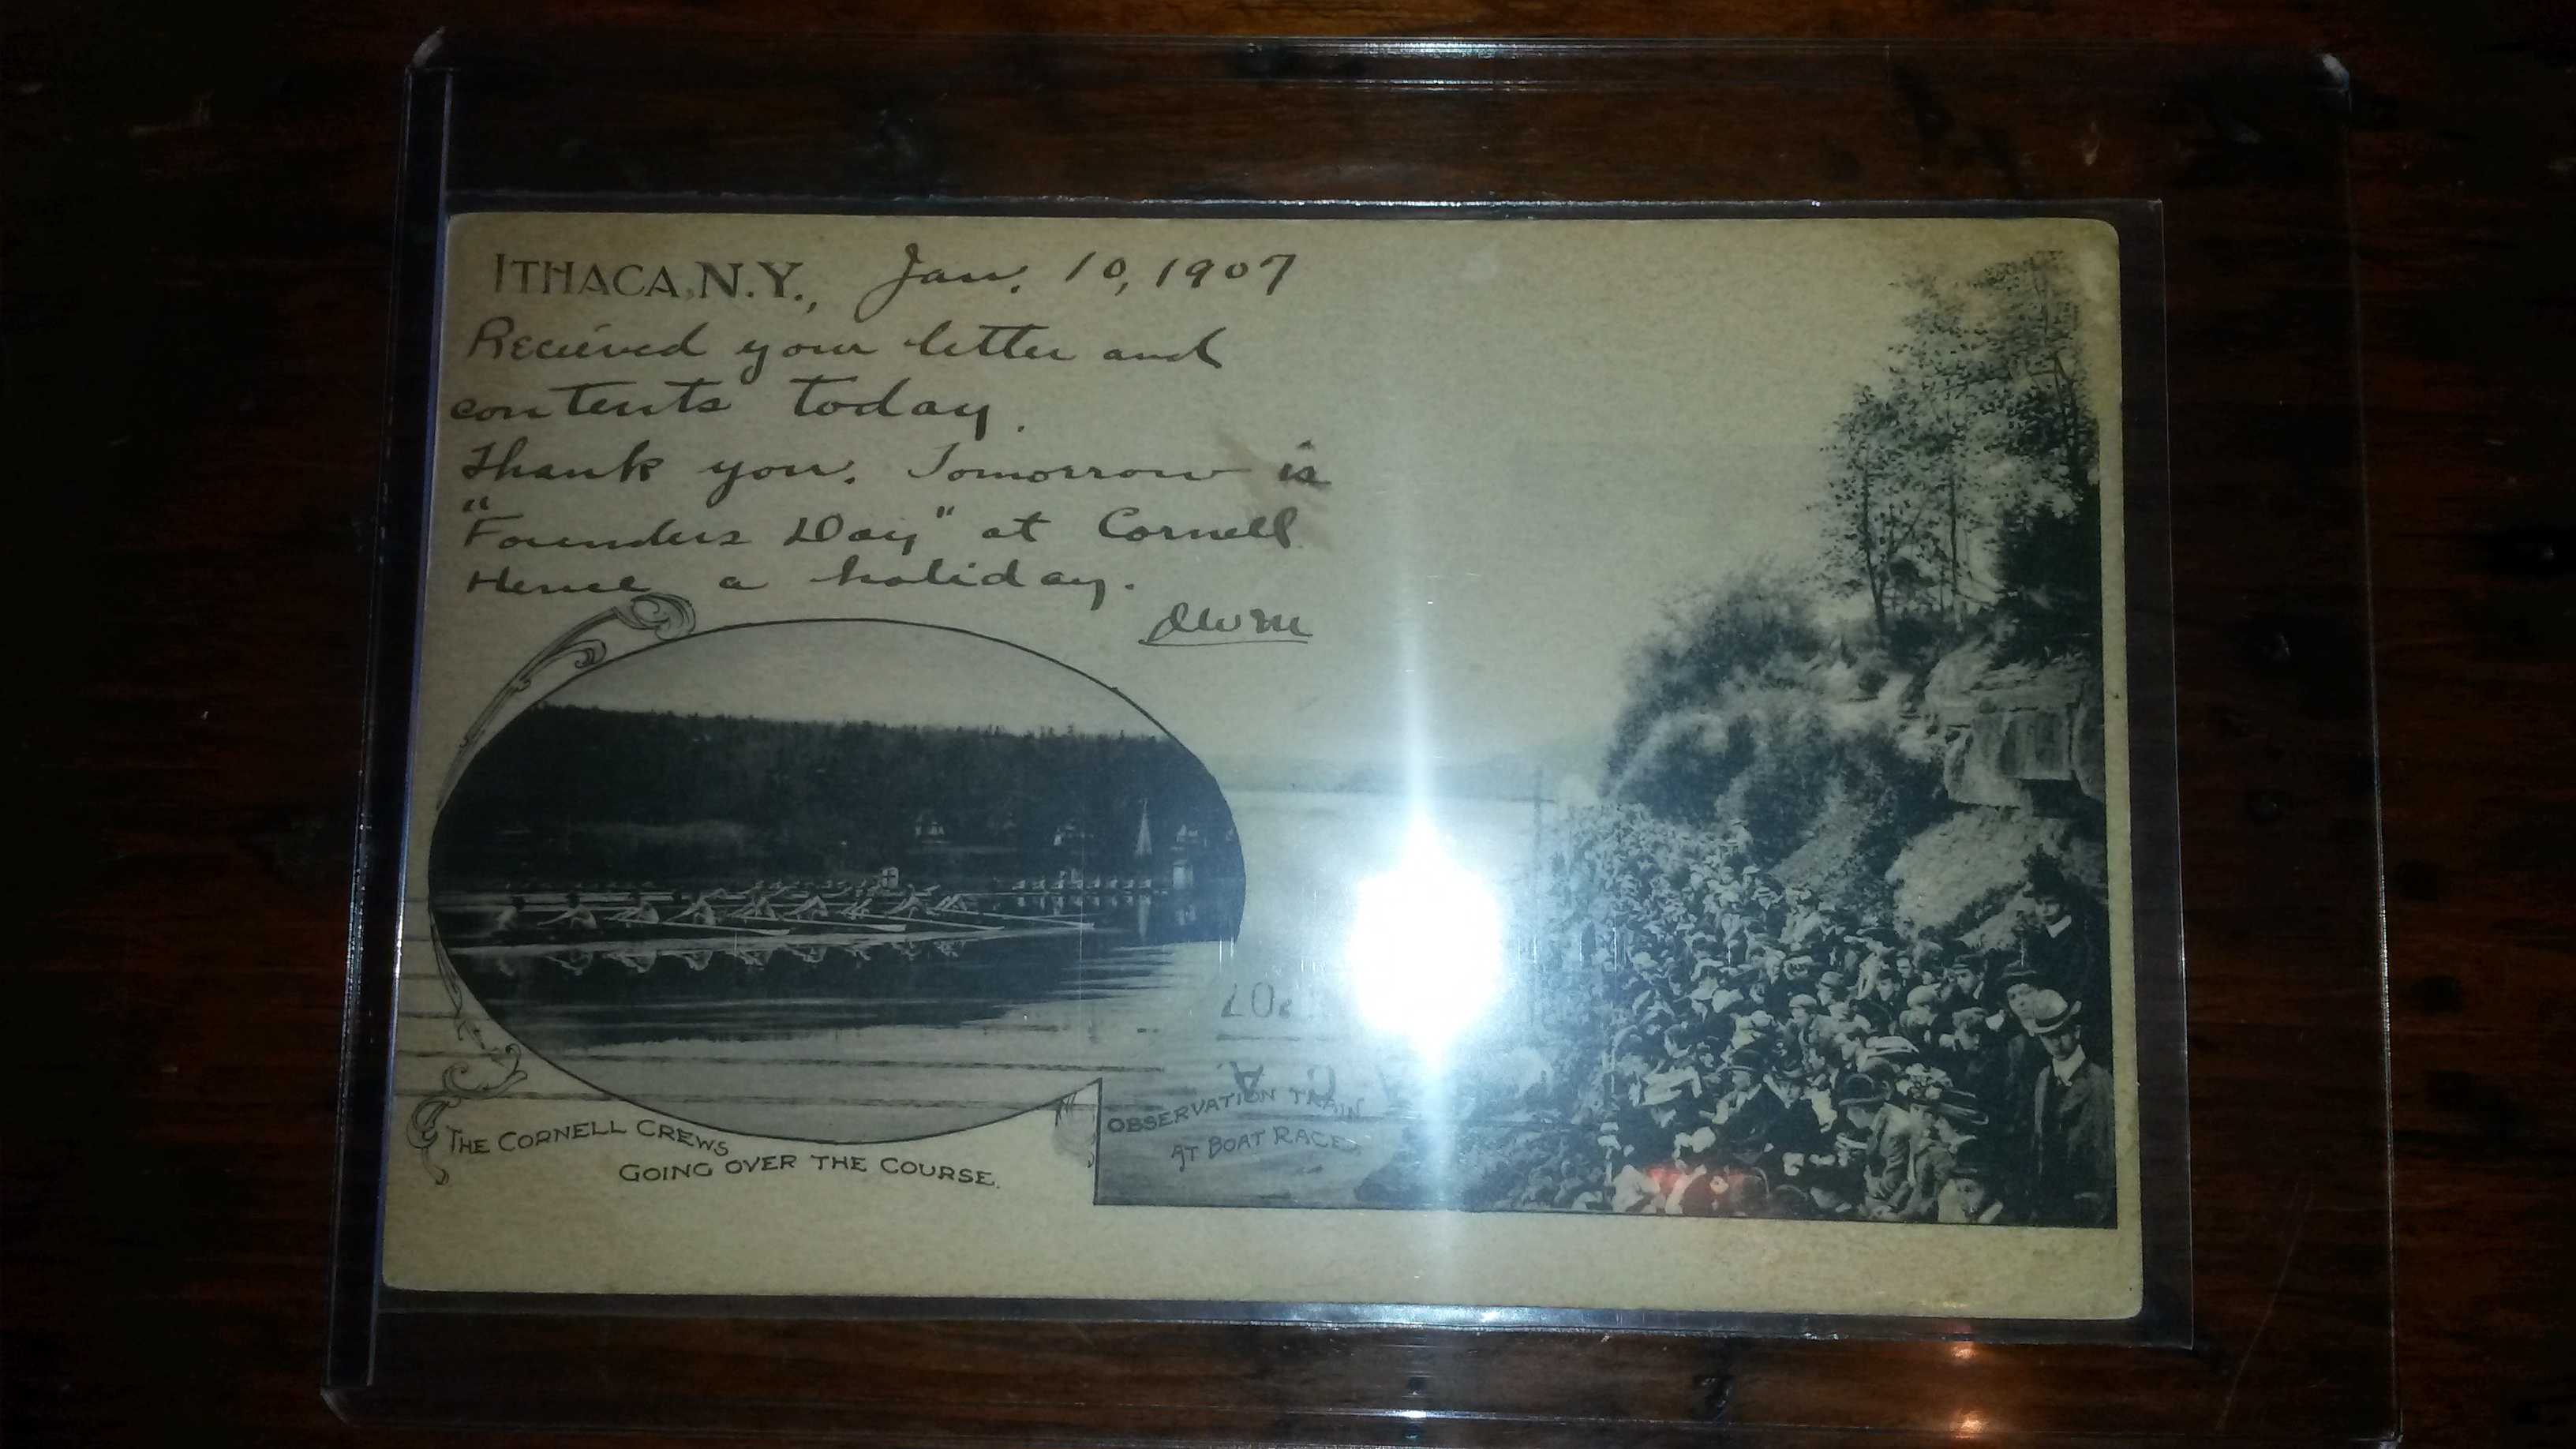 ITHACA, N.Y., Jan. 10, 1907
Recieved your letter and
contents today.
Thank you. Tomorrow is
"Founders Day" at Cornell
Hence a holiday.
THE CORNELL CREWS
GOING OVER THE COURSE.
OBSERVATION TRAIN
AT BOAT RACE